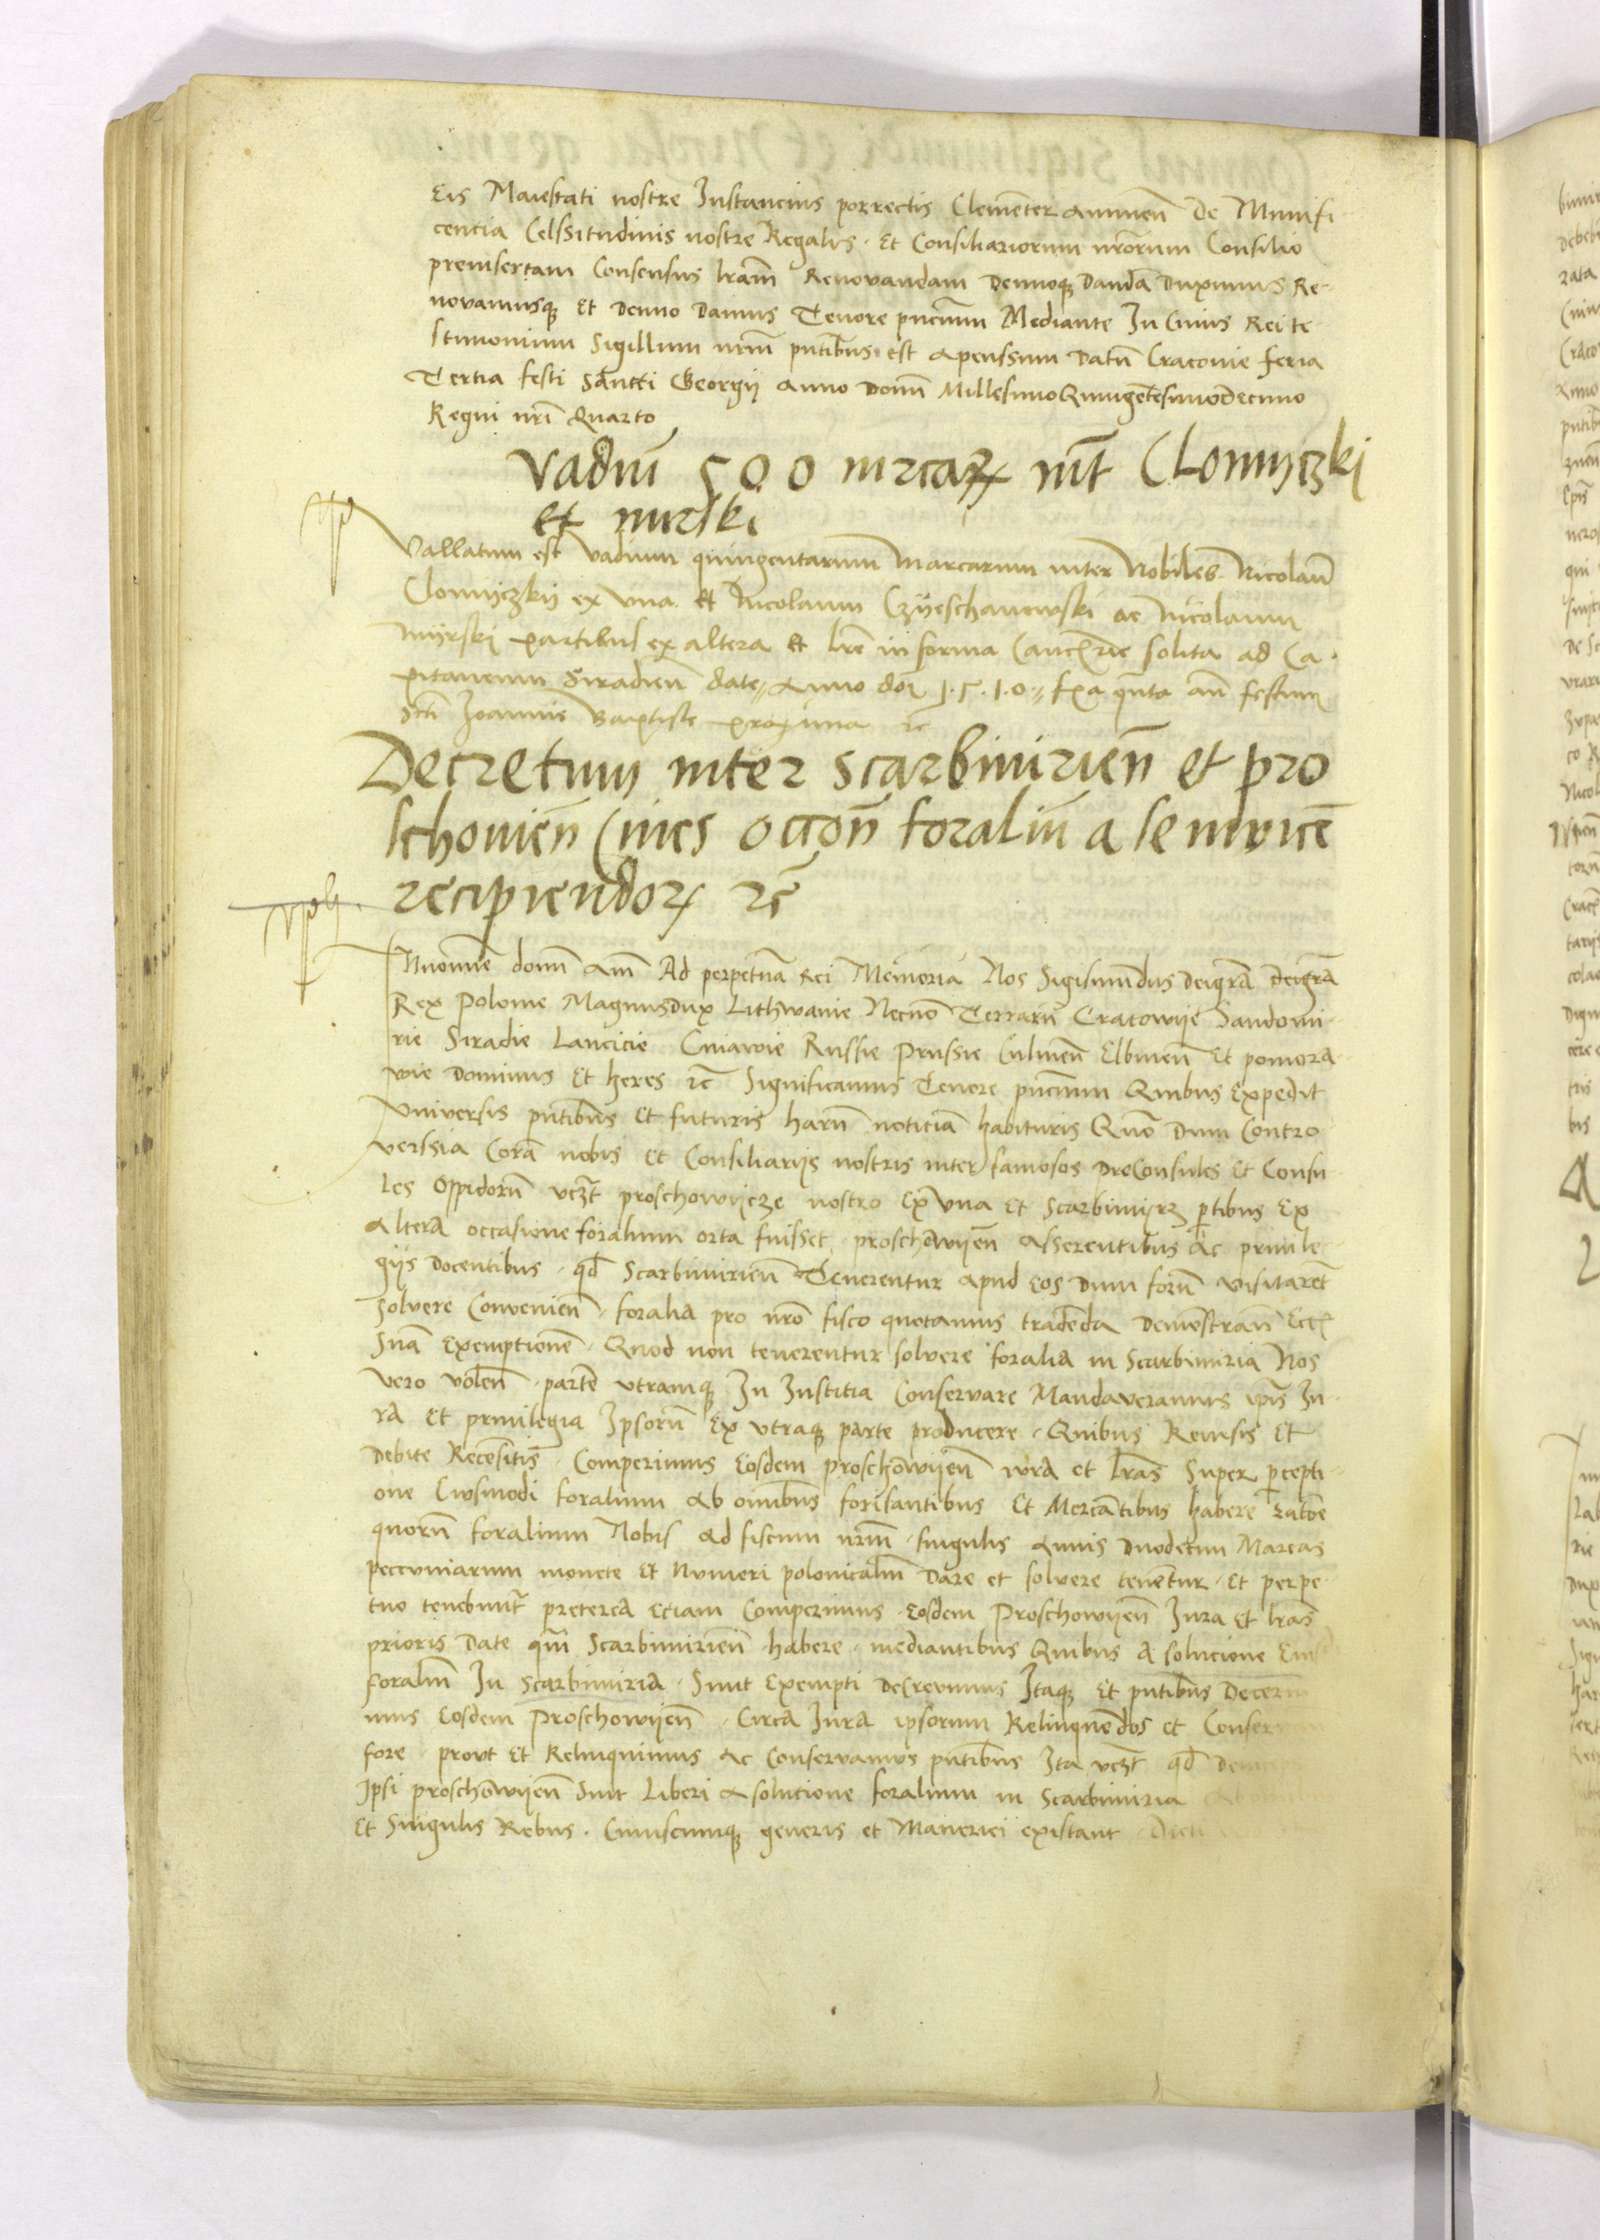 Eis Maiestati nostre Instancius porrectis Clementer annuen̄ De Munifi-
centia Celssitudinis nostre Regalis · Et Consiliariorum nr̄orum Consilio
preinsertam Consensus lr̄am Renovandam Denuoq̨ Dandā Duximus Re-
novamusq̨ Et Denuo Damus Tenore pn̄cium Mediante In Cuius Rei te-
stimonium Sigillum nrm̄ pn̄tibus est apenssum Datū Cracovie feria
Tertia festi Sancti Georgij Anno Domī Millesimo Quingētesimodecimo
Regni nr̄i Quarto
Vadiū 500 mrcarꝝ int̄ Clomyczki
et mirski
Vallatum est Vadium quingentarum Marcarum inter Nobiles Nicolaū
Clomyczkij ex Vna Et Nicolaum Czyeschanowski ac Nicolaum
Myrski partibus ex altera et lr̄e in forma Canc̄rie solita ad Ca-
pitaneum Siradien̄ date Anno doī 1·5·1·0 fr̄a qn̄ta an̄ festum
Sc̄ti Joannis Baptiste proxima ec̄
Decretum inter Scarbimirien̄ et pro
schovien̄ Cives occōn foraliū a se invicē
recipiendoꝝ ec̄
In noīe domī Am̄ Ad perpetuā rei Memoriā Nos Sigismundus Deigrā Deigrā
Rex Polonie Magnusdux Lithwanie Necnō Terrarū Cracowije Sandomi-
rie Siradie Lancicie Cuiavie Russie Prussie Culmen̄ Elbingen̄ Et pomora-
vie Dominus Et heres ec̄ Significamus Tenore pn̄cium Quibus Expedit
Universis pn̄tibus et futuris harū noticiā habituris Quō Dum Contro
verssia Corā nobis et Consiliarijs nostris inter famosos ProConsules Et Consu
les Oppidorū vcz̄t proschowijcze nostro Ex Vna Et Scarbimijrz p̄tibus Ex
Altera occasione foralium orta fuisset · proschowijen̄ Asserentibus Ac privile
gijs Docentibus · qd̄ Scarbimirien̄ Tenerentur apud Eos Dum forū visitarēt
Solvere Convenien̄ · foralia pro nr̄o fisco quotannis tradēda Demōstran̄ Ec̄
Suā Exemptionē · Quod non tenerentur solvere foralia in Scarbimiria Nos
vero volen̄ · partē utramq̨ In Iustitia Conservare Mandaveramus ip̄is Iu-
ra Et privilegia Ipsorū Ex utraq̨ parte producere · Quibus Revisis Et
Debite Recēsitis · Comperimus Eosdem proschowijen̄ iura et lr̄as Super p̄cepti-
one Eiusmodi foralium Ab omībus forisantibus Et Mercātibus habere ratōe
quorū foralium Nobis Ad fiscum nrm̄ · singulis Annis Duodecim Marcas
peccuniarum monete Et Numeri polonicaliū Dare et solvere tenētur · Et perpe-
tuo tenebunt̄ preterea etiam Comperimus · eosdem Proschowijen̄ Iura et lr̄as
prioris Date qm̄ Scarbimirien̄ habere · mediantibus Quibus A solucione
foraliū In Scarbimiria · Sunt Exempti DeCrevimus Itaq̨ Et pn̄tibus Decerni
mus Eosdem Proschowijen̄ · Circa Iura ipsorum Relinquēdos et Conser
fore · prout Et Relinquimus Ac Conservamus pn̄tibus Ita vcz̄t qd̄
Ipsi proschowijen̄ Sint Liberi A solutione foralium in Scarbimiria
Et Singulis Rebus · Cuiuscumq̨ generis et Materiei existant